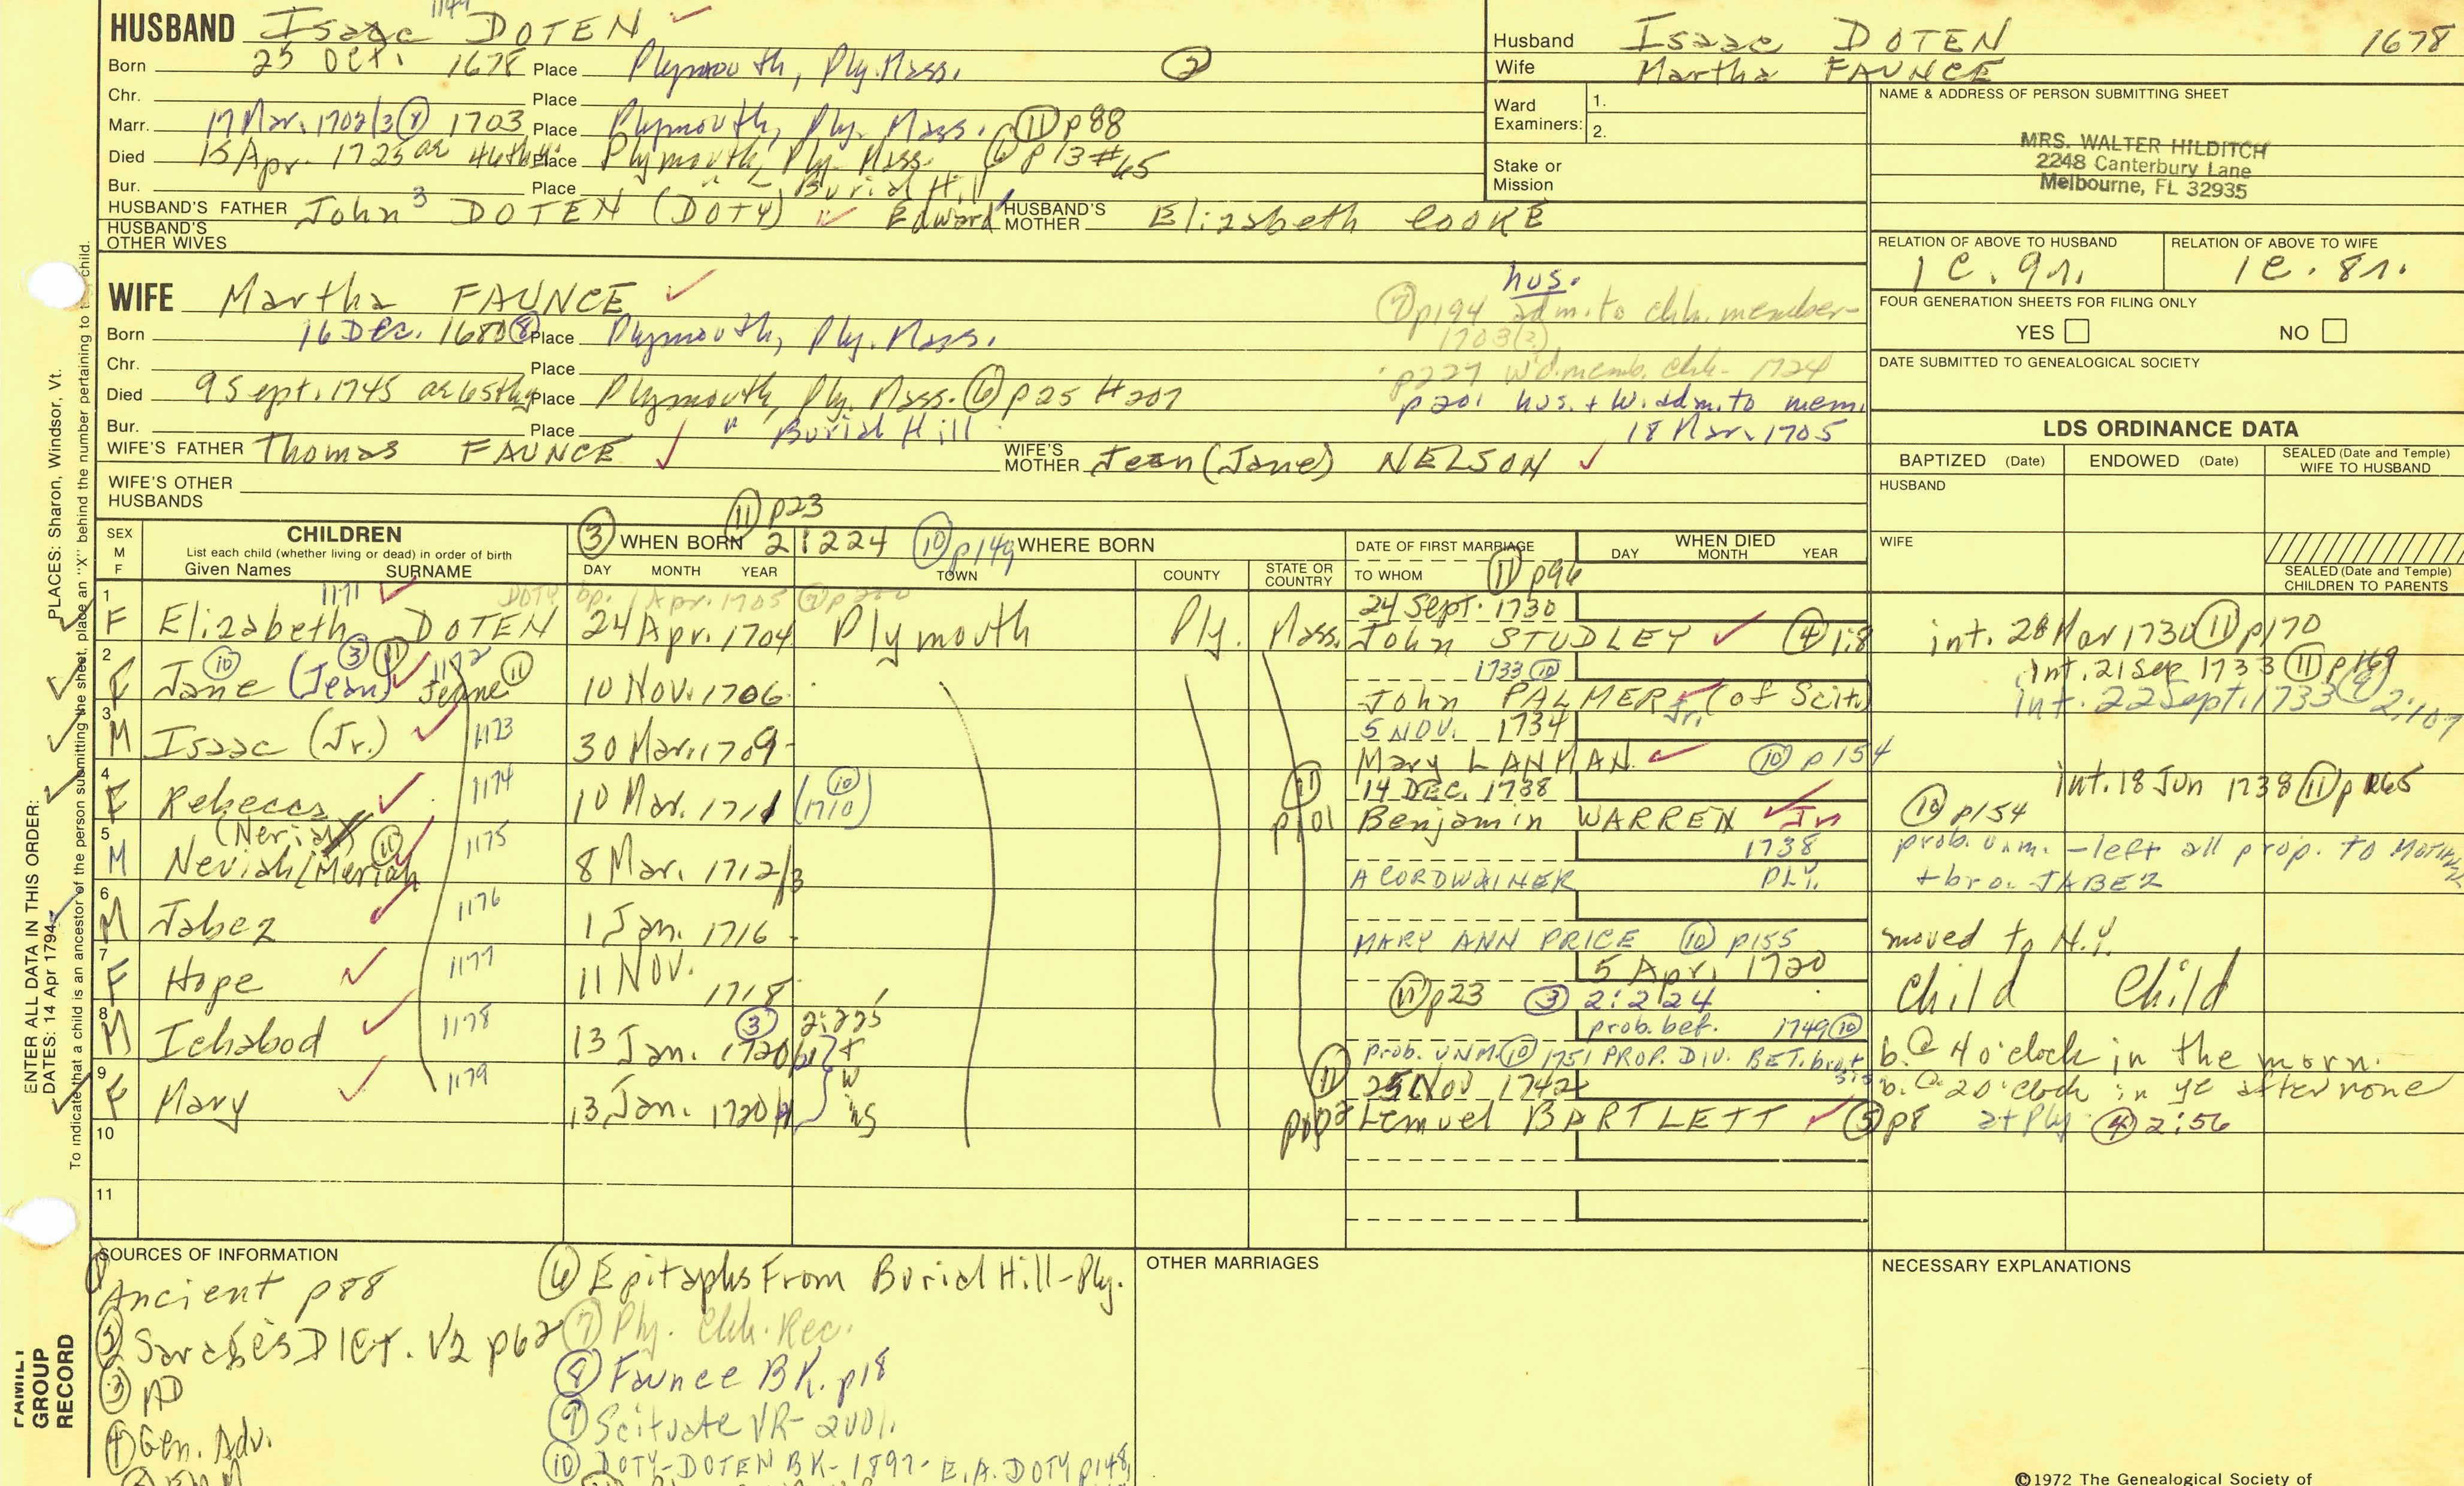 1144
HUSBAND Isaac DOTEN
Born 25 Oct. 1678 Place Plymouth, Ply. Mass. ②
Chr. Place
Marr. 17 Mar. 1702/3 ⑧ 1703 Place Plymouth, Ply. Mass. ⑪ p88
Died 15 Apr. 1725 ae 46thy. Place Plymouth, Ply. Mass. ⑥ p13 #65
Bur. Place " " Burial Hill
HUSBAND'S FATHER John³ DOTEN (DOTY) Edward HUSBAND'S MOTHER Elizabeth COOKE
HUSBAND'S OTHER WIVES
Husband Isaac DOTEN 1678
Wife Martha FAUNCE
Ward Examiners: 1.
2.
Stake or Mission
NAME & ADDRESS OF PERSON SUBMITTING SHEET
MRS. WALTER HILDITCH
2248 Canterbury Lane
Melbourne, FL 32935
RELATION OF ABOVE TO HUSBAND RELATION OF ABOVE TO WIFE
1C. 9r. 1C. 8r.
FOUR GENERATION SHEETS FOR FILING ONLY
YES NO
DATE SUBMITTED TO GENEALOGICAL SOCIETY
WIFE Martha FAUNCE
Born 16 Dec. 1680 ⑧ Place Plymouth, Ply. Mass.
Chr. Place
Died 9 Sept. 1745 ae 65thy Place Plymouth, Ply. Mass. ⑥ p25 #207
Bur. Place " Burial Hill
WIFE'S FATHER Thomas FAUNCE WIFE'S MOTHER Jean (Jane) NELSON
WIFE'S OTHER HUSBANDS
hus.
⑦ p194 adm. to chh. member-
1703(2)
p227 wd. memb. chh- 1724
p201 hus. + W. adm. to mem.
18 Mar. 1705
LDS ORDINANCE DATA
BAPTIZED (Date) ENDOWED (Date) SEALED (Date and Temple) WIFE TO HUSBAND
HUSBAND
WIFE
SEALED (Date and Temple) CHILDREN TO PARENTS
⑪ p23
SEX M F CHILDREN ③ WHEN BORN 2 1224 ⑩ p149 WHERE BORN DATE OF FIRST MARRIAGE WHEN DIED
List each child (whether living or dead) in order of birth DAY MONTH YEAR
Given Names SURNAME DAY MONTH YEAR TOWN COUNTY STATE OR COUNTRY TO WHOM ⑪ p96
1171 DOTY bp. 1 Apr. 1705 ⑦ 24 Sept. 1730
1 F Elizabeth DOTEN 24 Apr. 1704 Plymouth Ply. Mass. John STUDLEY ④ 1:8 int. 28 Mar 1730 ⑪ p170
1733 ⑩ Int. 21 Sep 1733 ⑪ p169
2 F Jane ⑩ (Jean) ③ ⑪ 1172 Jeane ⑪ 10 Nov. 1706 John PALMER Jr. (of Scit) Int. 22 Sept. 1733 ⑨ 2:107
5 NOV. 1734
3 M Isaac (Jr.) 1173 30 Mar. 1709 Mary LANMAN ⑩ p154
14 DEC. 1738 int. 18 Jun 1738 ⑪ p165
4 F Rebecca 1174 10 Mar. 1711 (1710) ⑩ ⑪ p101 Benjamin WARREN Jr ⑩ p154
(Neriah) 1738 prob. unm. - left all prop. to MOTHER
5 M Neviah/Meriah ⑪ 1175 8 Mar. 1712/3 A CORDWAINER PLY. + bro. JABEZ
6 M Jabez 1176 1 Jan. 1716 MARY ANN PRICE ⑩ p155 moved to N.Y.
5 Apr. 1720
7 F Hope 1177 11 Nov. 1718 ⑪ p23 ③ 2:224 Child Child
③ 2:225 prob. bef. 1749 ⑩
8 M Ichabod 1178 13 Jan. 1720 Prob. UNM. ⑩ 1751 PROP. DIV. BET. bro + sis b. @ 4 o'clock in the morn.
twins ⑪ 25 Nov 1742 b. @ 2 o'clock in ye afternone
9 F Mary 1179 13 Jan. 1720 Lemuel BARTLETT ⑤ p8 at Ply ④ 2:56
10
11
SOURCES OF INFORMATION
① Ancient p88
② Savage's DICT. V2 p62
③ MD
④ Gen. Adv.
⑥ Epitaphs From Burial Hill-Ply.
⑦ Ply. Chh. Rec.
⑧ Faunce BK. p18
⑨ Scituate VR-
⑩ DOTY-DOTEN BK- 1897- E.A. DOTY p148,
OTHER MARRIAGES
NECESSARY EXPLANATIONS
©1972 The Genealogical Society of
ENTER ALL DATA IN THIS ORDER:
DATES: 14 Apr 1794 PLACES: Sharon, Windsor, Vt.
To indicate that a child is an ancestor of the person submitting the sheet, place an "X" behind the number pertaining to child.
FAMILY GROUP RECORD